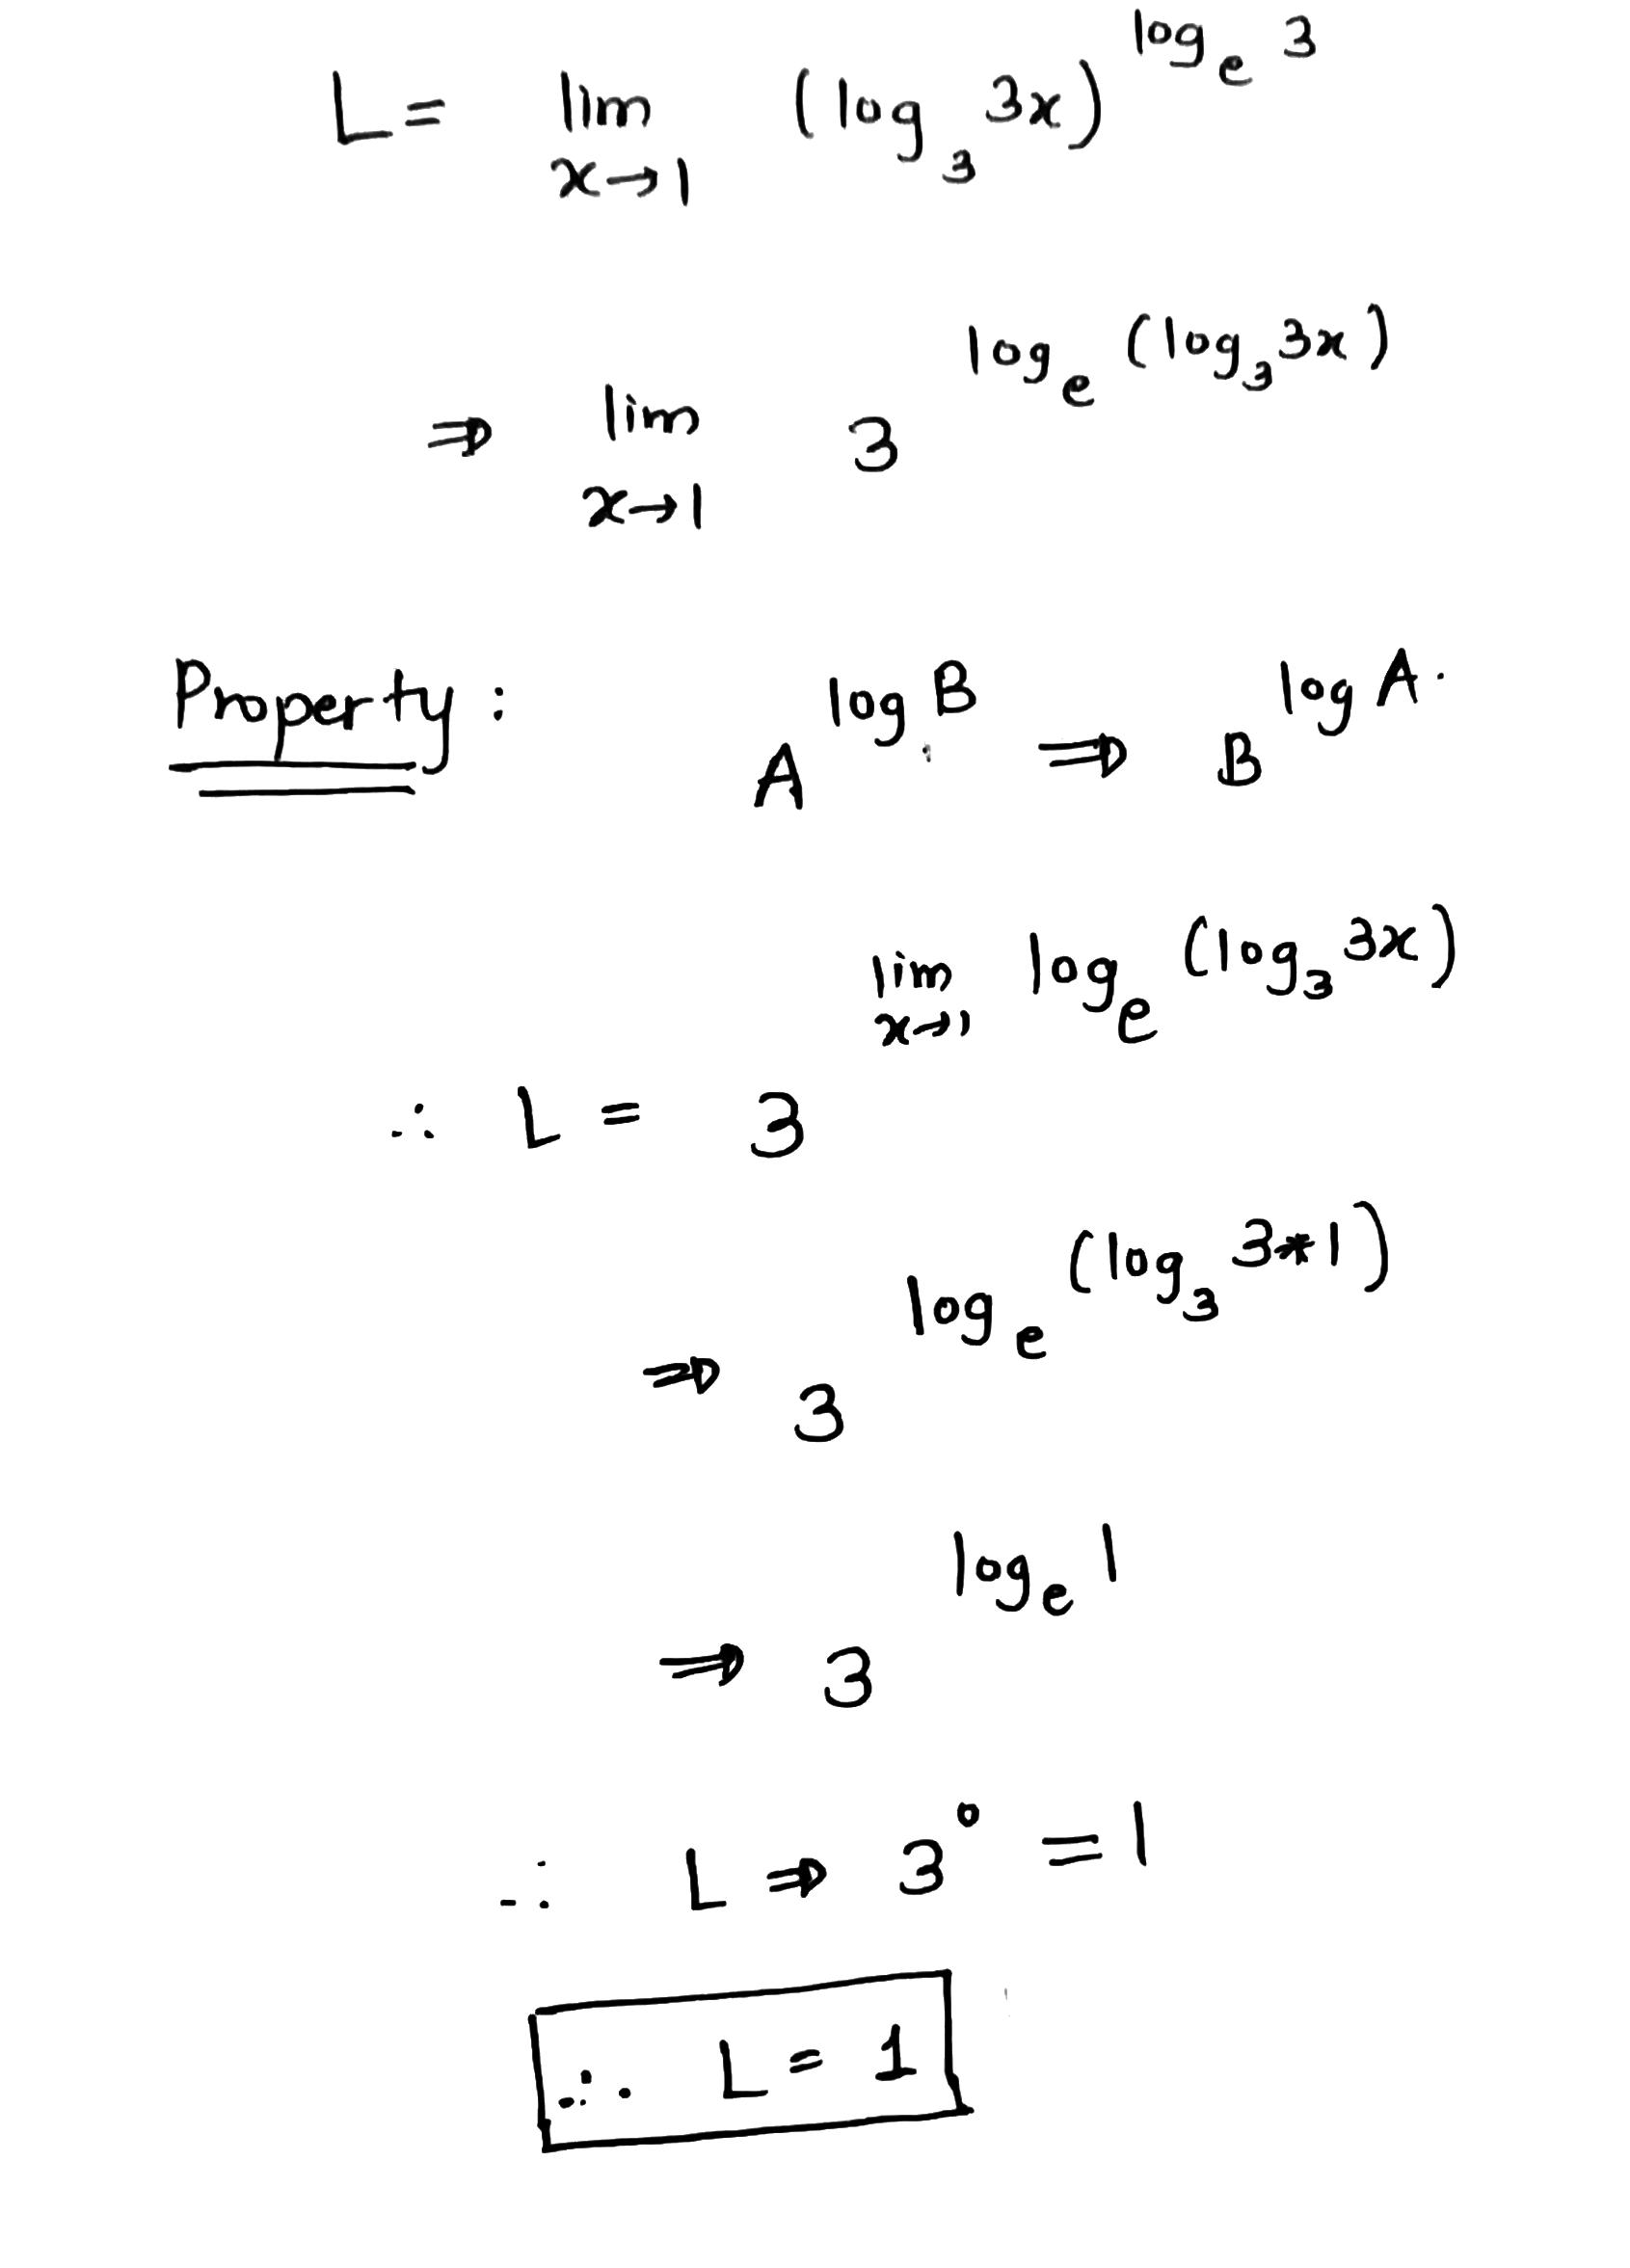 L = lim x→1 (log₃ 3x)^(logₑ 3)
⇒ lim x→1 3^(logₑ (log₃ 3x))
Property : A^(log B) ⇒ B^(log A).
∴ L = 3^(lim x→1 logₑ (log₃ 3x))
⇒ 3^(logₑ (log₃ 3*1))
⇒ 3^(logₑ 1)
∴ L ⇒ 3⁰ = 1
∴ L = 1